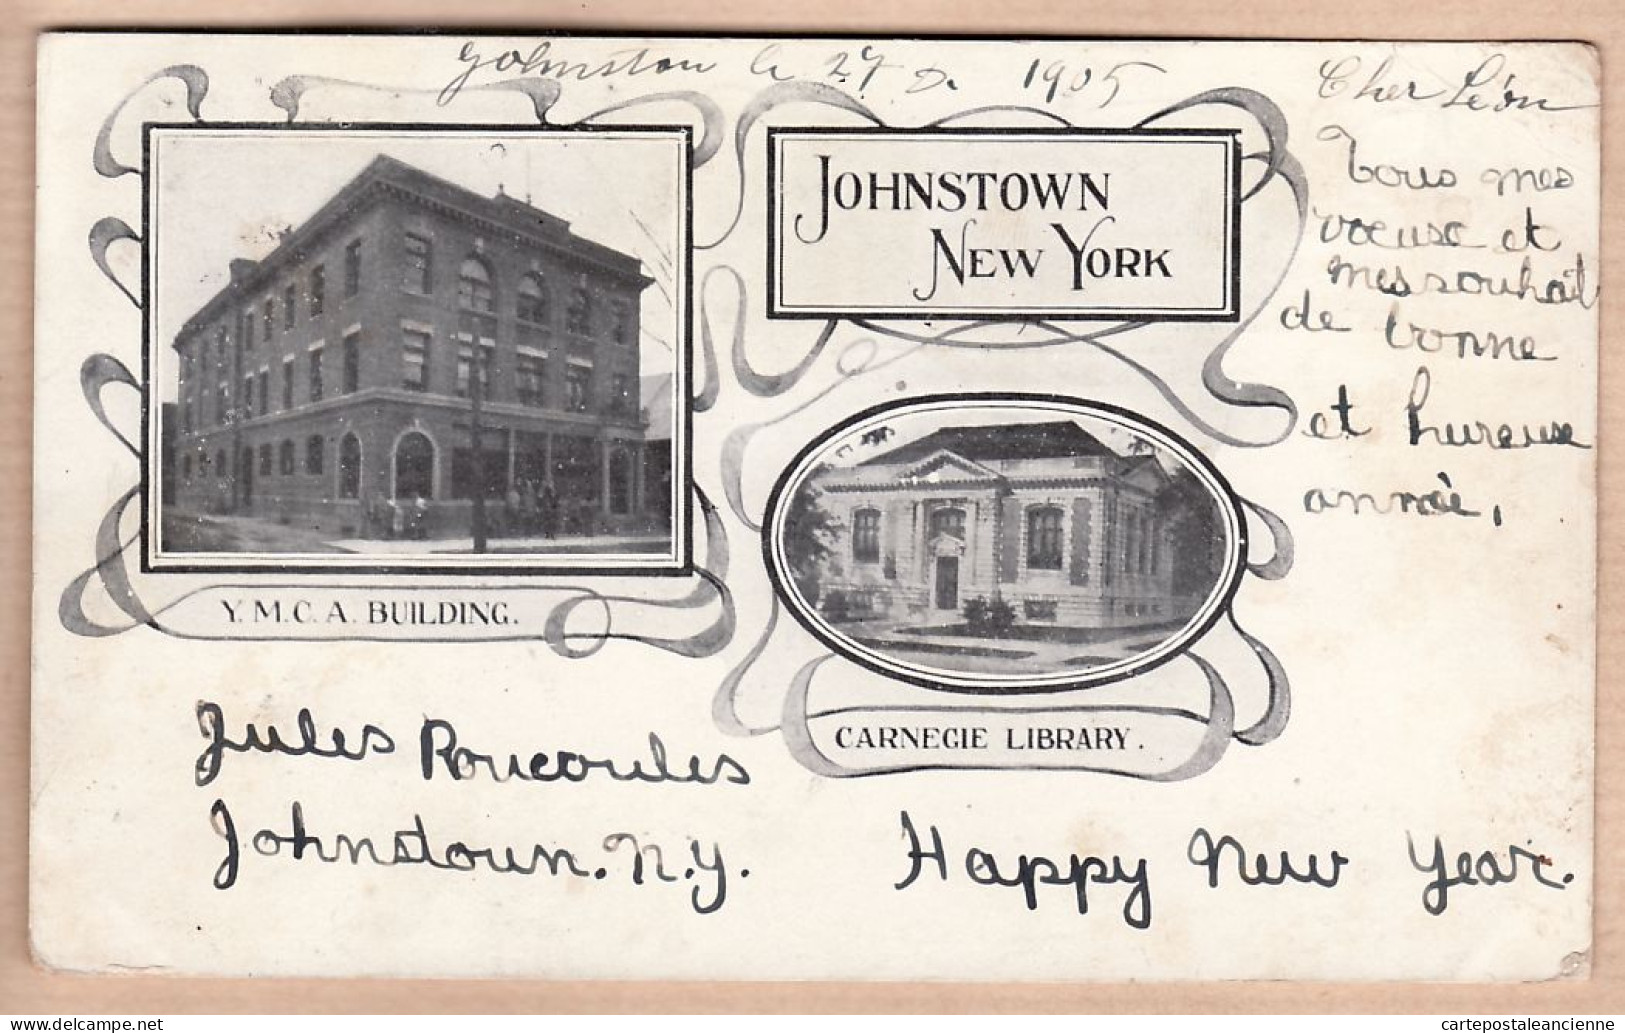 Johnston le 27 D. 1905
Cher Léon
Tous mes
voeuse et
mes souhait
de bonne
et hureuse
année,
JOHNSTOWN
NEW YORK
Y. M. C. A. BUILDING.
CARNEGIE LIBRARY.
Jules Roucoules
Johnstoun. N.y.
Happy New Year.
delcampe.net
cartepostaleancienne